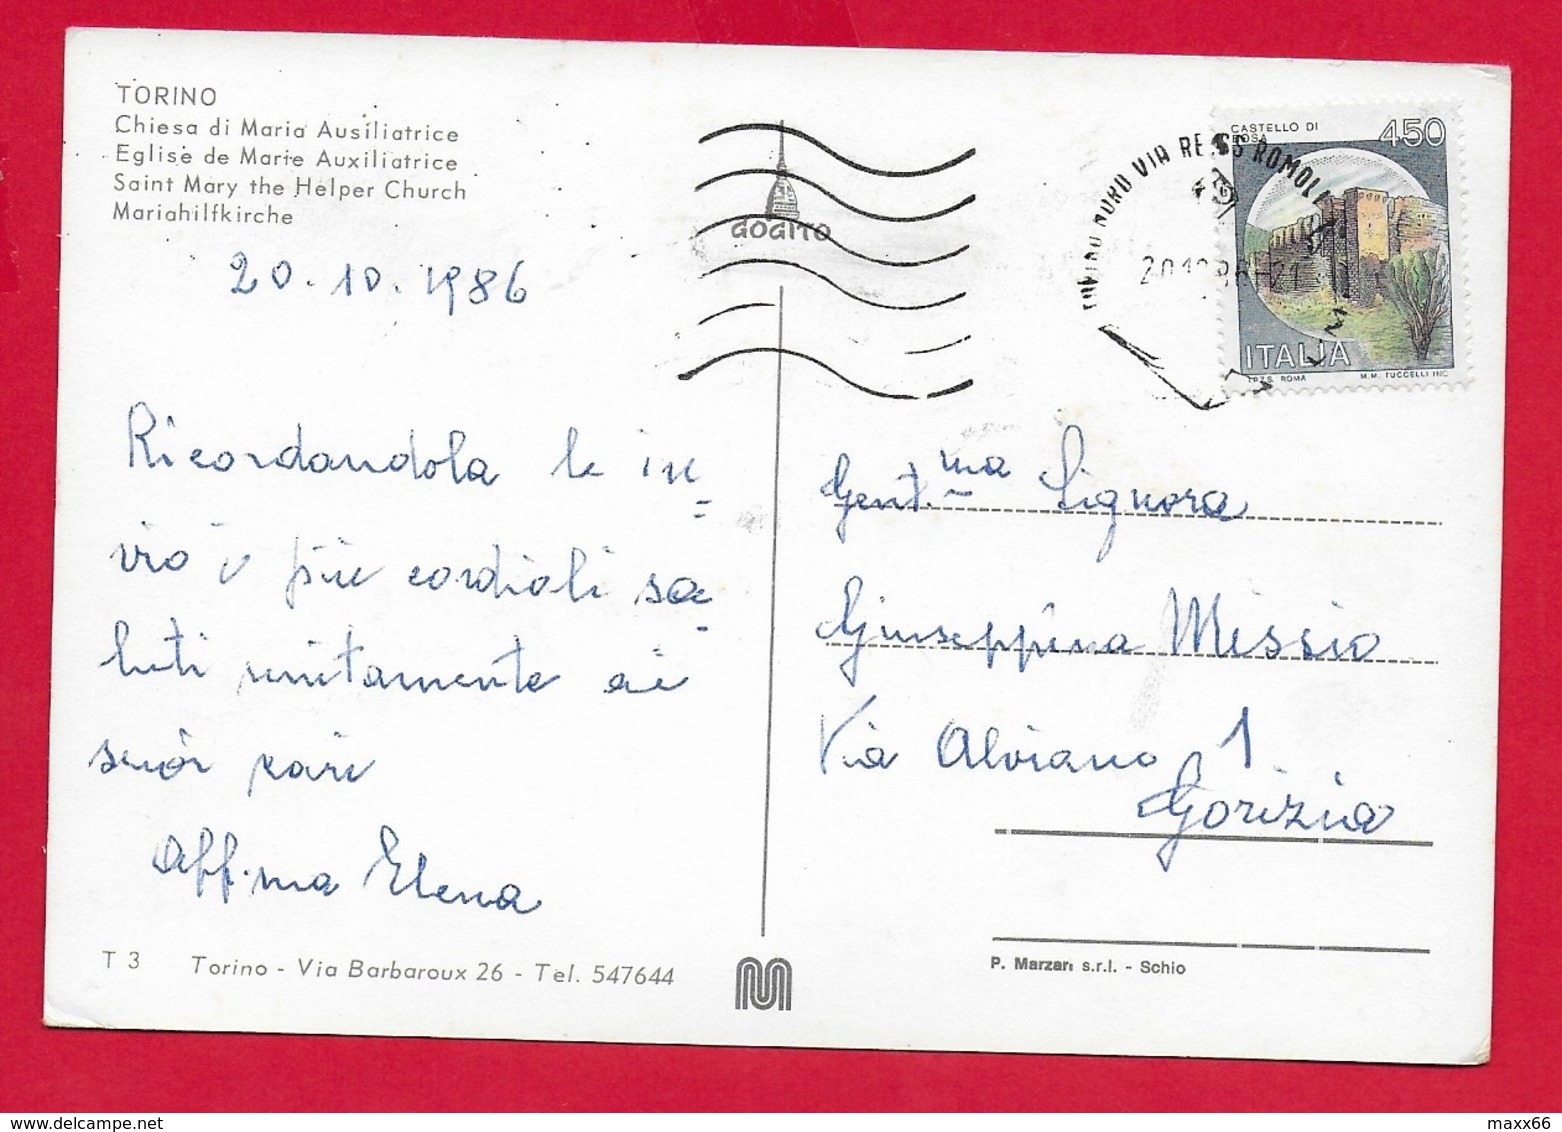 TORINO
Chiesa di Maria Ausiliatrice
Eglise de Marie Auxiliatrice
Saint Mary the Helper Church
Mariahilfkirche
20.10.1986
Ricordandola le in=
vio i più cordiali sa=
luti unitamente ai
suoi cari
Aff.ma Elena
T 3 Torino - Via Barbaroux 26 - Tel. 547644
GOGITO
TORINO NORD VIA REISS ROMOLI
20.10.86-21
CASTELLO DI
BOSA
450
ITALIA
I.P.Z.S. ROMA M.M. TUCCELLI INC.
Gent.ma Signora
Giuseppina Missio
Via Alviano 1
Gorizia
P. Marzari s.r.l. - Schio
maxx66